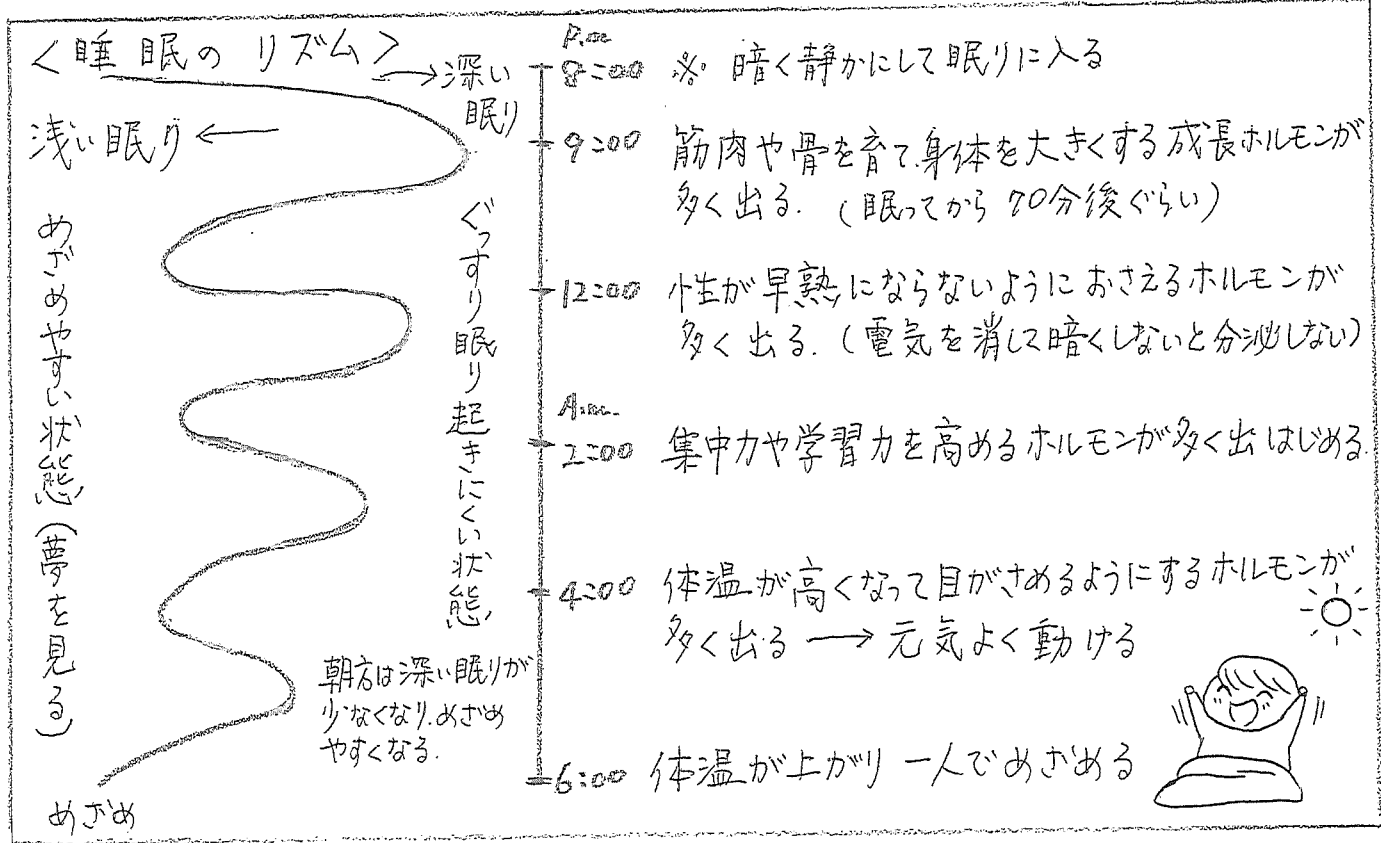 <睡眠のリズム>
→深い
眠り
浅い眠り←
めざめやすい状態(夢を見る)
ぐっすり眠り起きにくい状態
朝方は深い眠りが
少なくなり、めざめ
やすくなる.
めざめ
P.m
8:00 ※ 暗く静かにして眠りに入る
9:00 筋肉や骨を育て、身体を大きくする成長ホルモンが
多く出る.(眠ってから70分後ぐらい)
12:00 性が早熟にならないようにおさえるホルモンが
多く出る.(電気を消して暗くしないと分泌しない)
A.m.
2:00 集中力や学習力を高めるホルモンが多く出はじめる.
4:00 体温が高くなって目がさめるようにするホルモンが
多く出る → 元気よく動ける
6:00 体温が上がり一人でめざめる